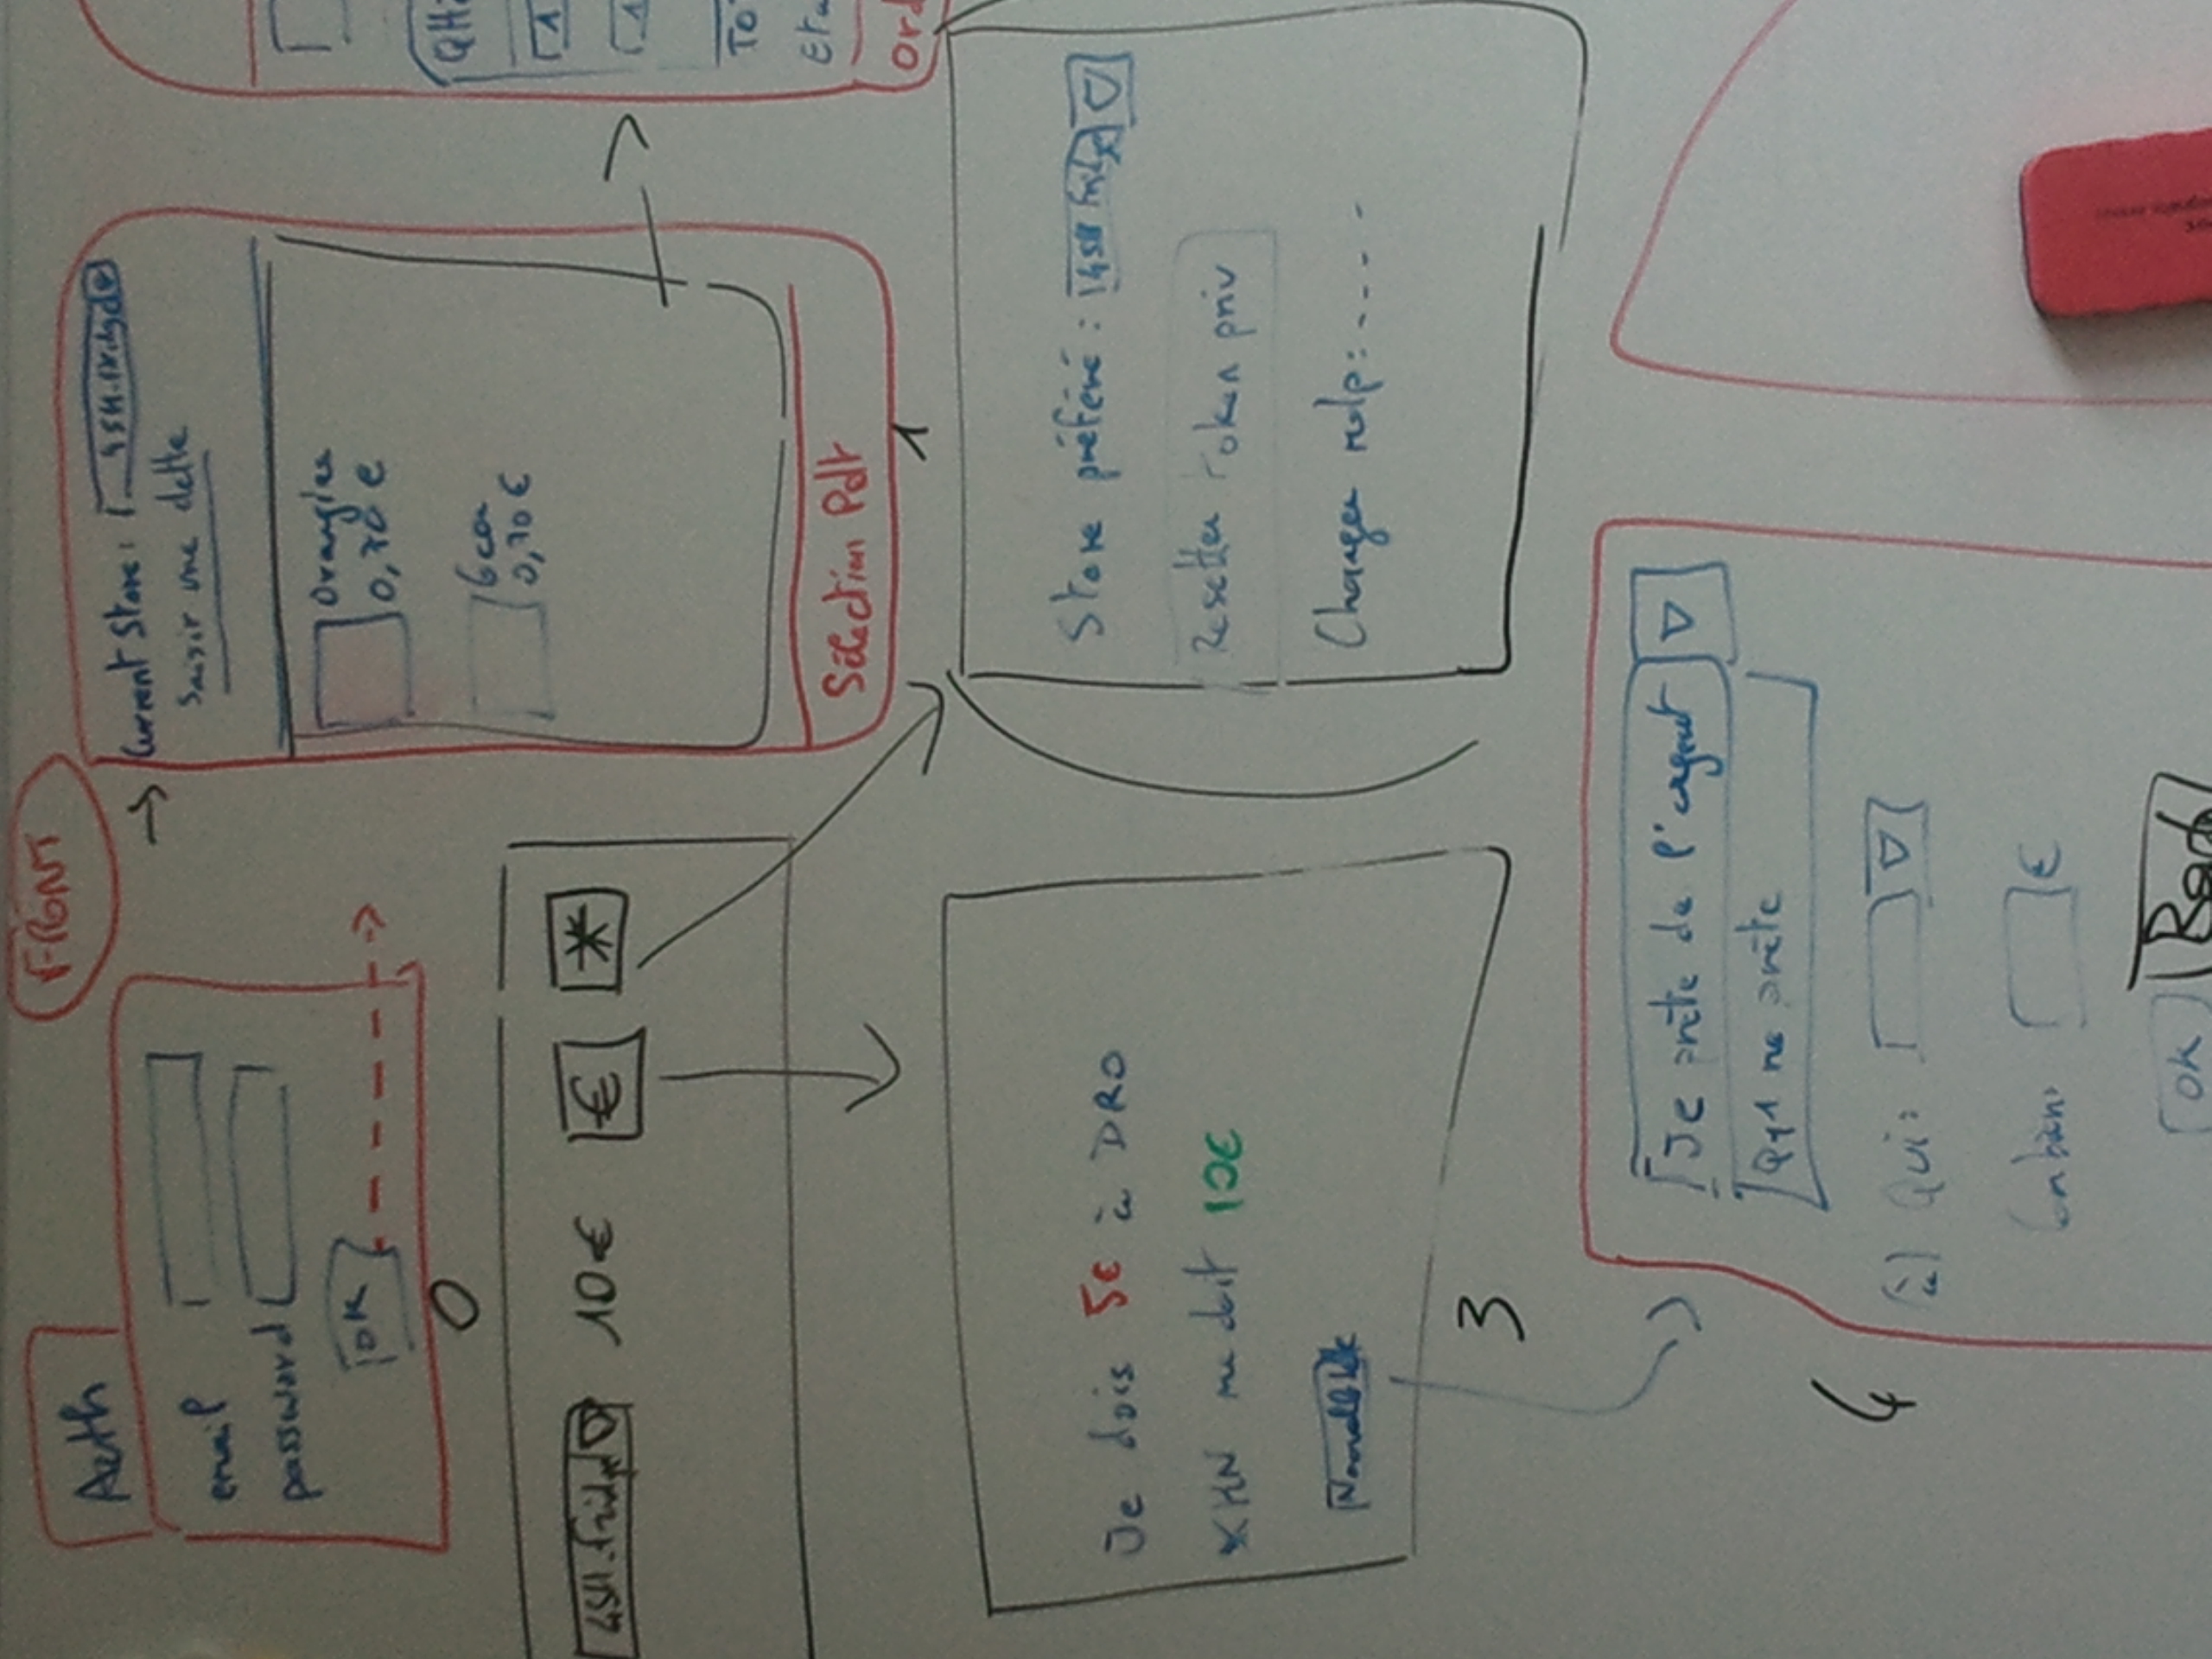 FRONT
Auth
email
password
OK
0
Current Store: 4SH.fridge
Saisir une dette
Orangina
0,70 €
0,70 €
Sélection Pdt
1
4SH.fridge 10 € € *
Je dois 5€ à DRO
me doit 10€
3
Store préféré : 4SH fridge
Resetter token priv
Changer mdp: - - - -
QH
1
1
TO
Eta
Ord
Je prête de l'argent
Qq1 me prête
4
(à) Qui:
Combien: €
OK Back